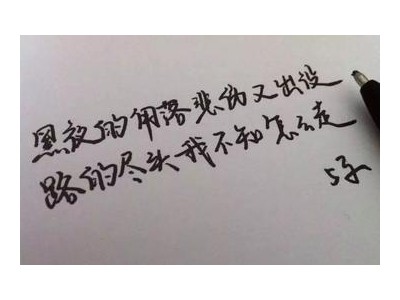 黑夜的角落悲伤又出没
路的尽头我不知怎么走